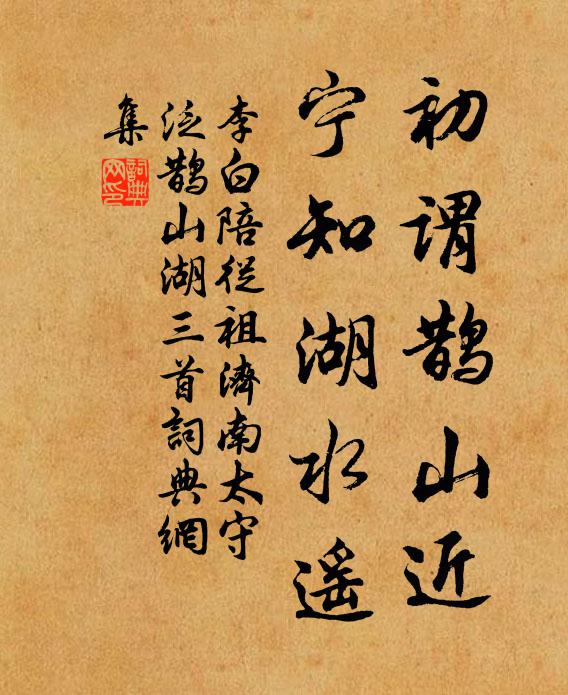 初谓鹊山近
宁知湖水遥
李白陪從祖濟南太守
泛鹊山湖三首詞典網
集
詞典
网印